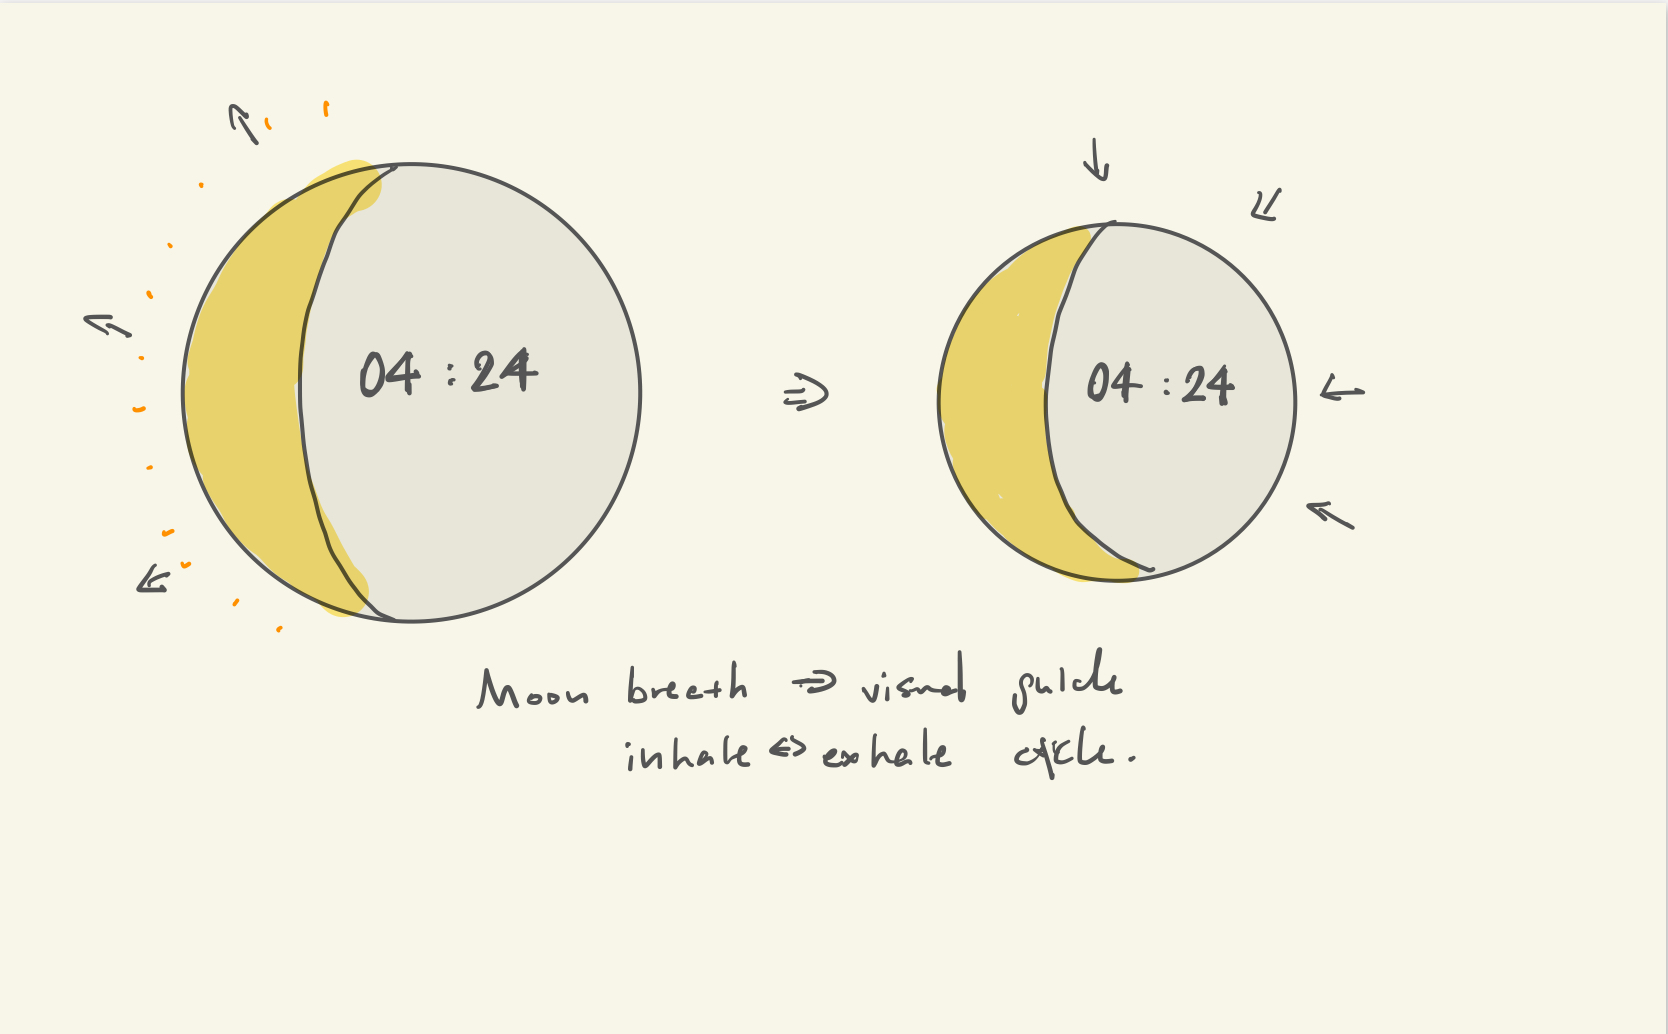 04 : 24
04 : 24
Moon breath ⇒ visual guide
inhale ⇔ exhale cycle.